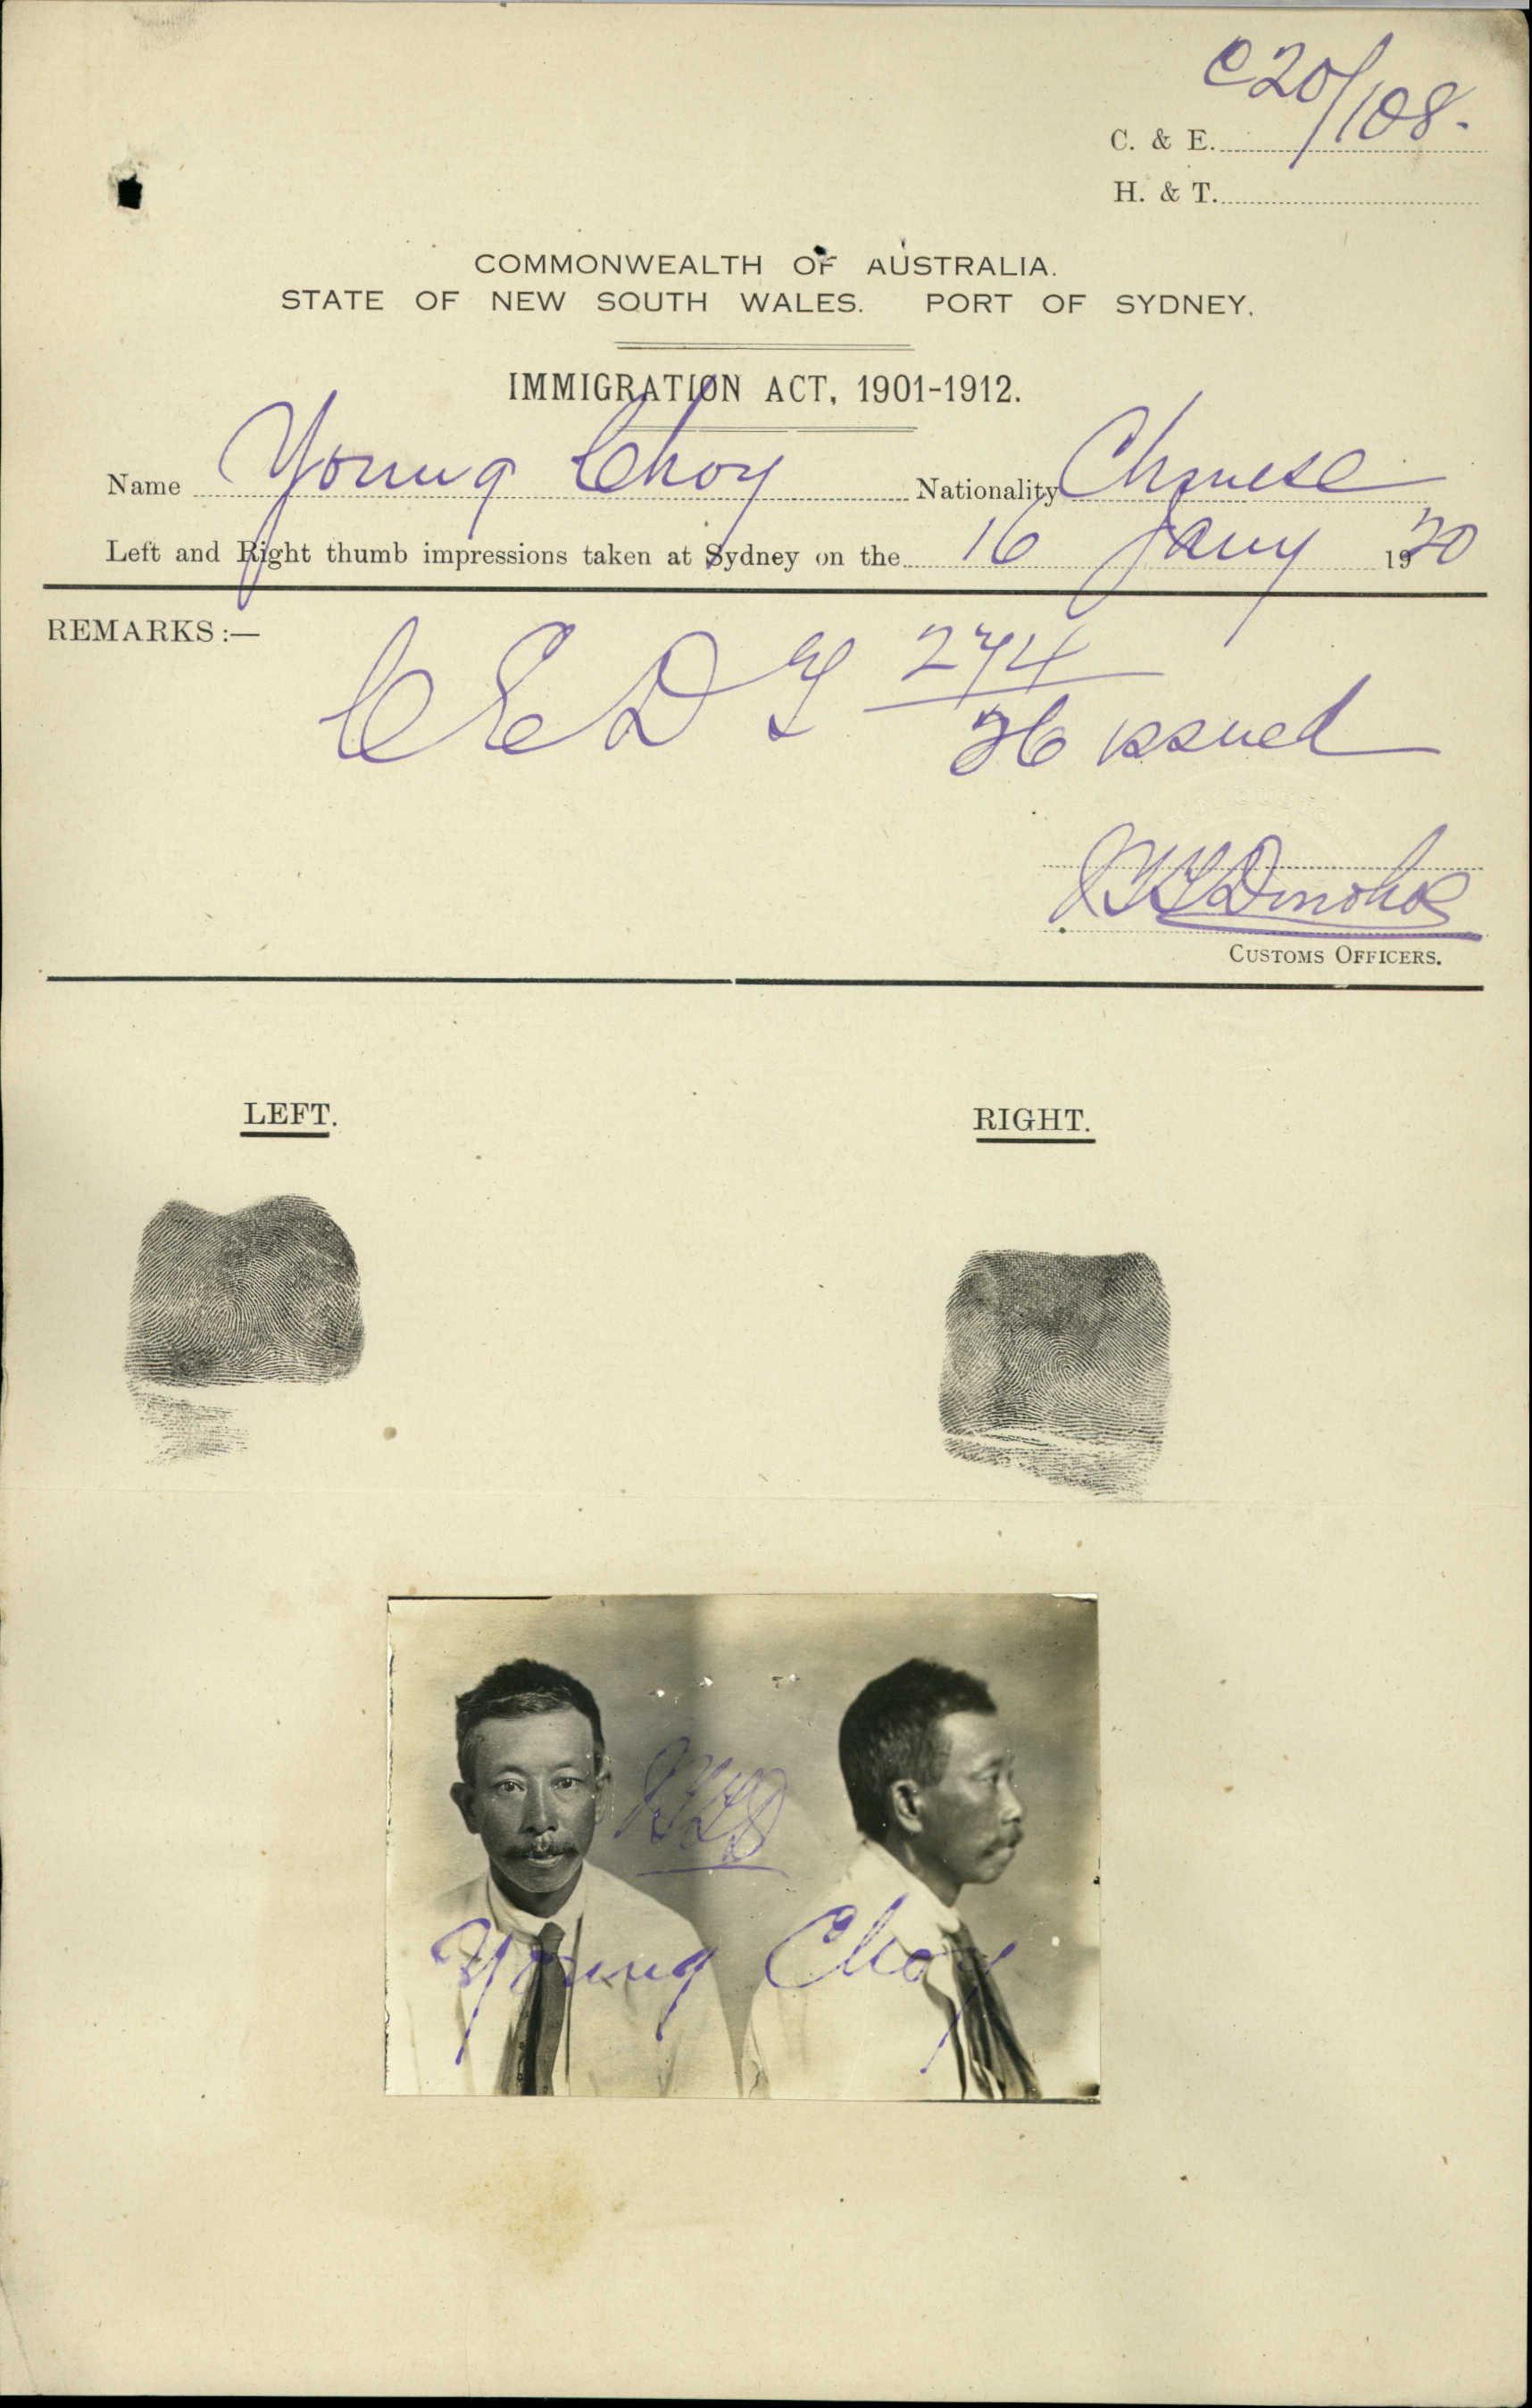 C20/108.
C. & E.
H. & T.
COMMONWEALTH OF AUSTRALIA.
STATE OF NEW SOUTH WALES. PORT OF SYDNEY.
IMMIGRATION ACT, 1901-1912.
Name Young Choy Nationality Chinese
Left and Right thumb impressions taken at Sydney on the 16 Jany 1920
REMARKS :—
C E D T 274
36 issued
Donohoe
CUSTOMS OFFICERS.
LEFT. RIGHT.
Young Choy